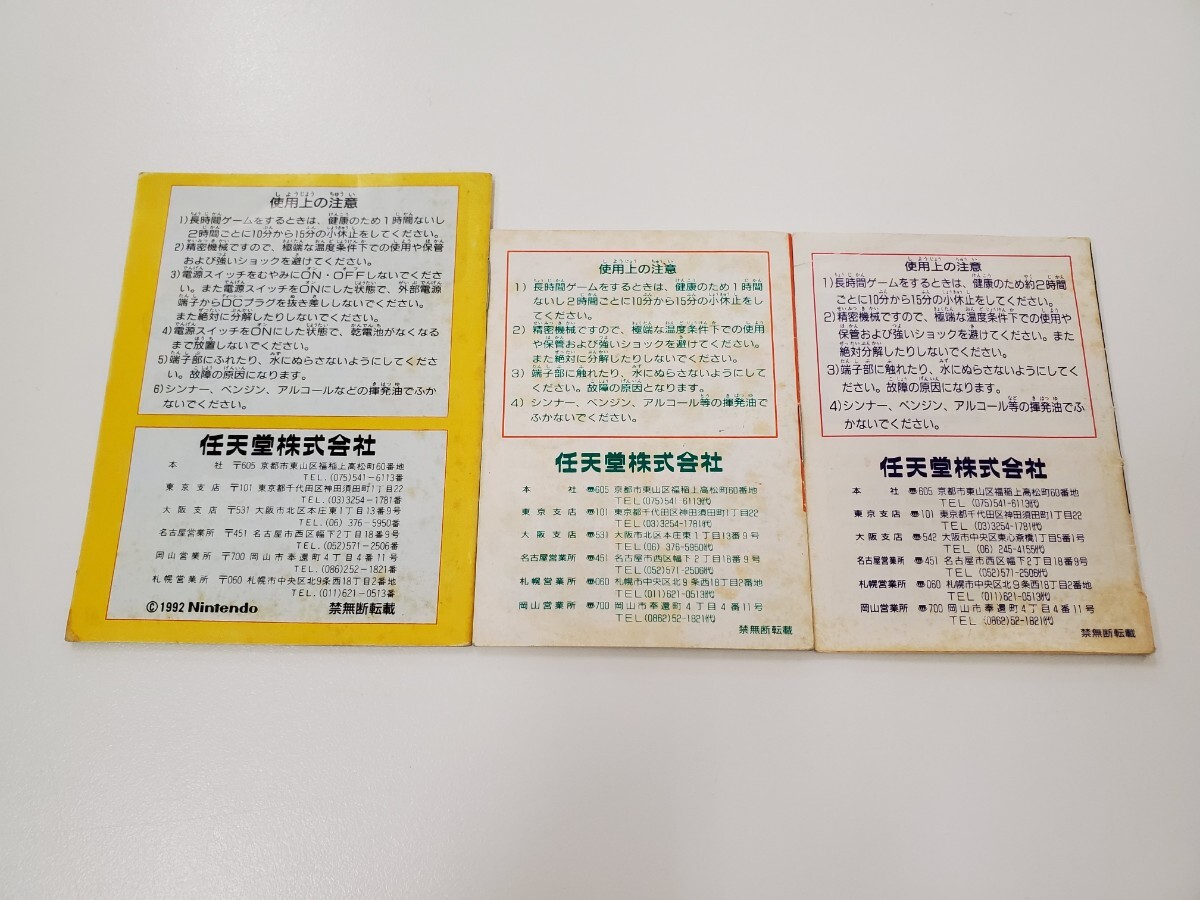 使用上の注意
1)長時間ゲームをするときは、健康のため1時間ないし
2時間ごとに10分から15分の小休止をしてください。
2)精密機械ですので、極端な温度条件下での使用や保管
および強いショックを避けてください。
3)電源スイッチをむやみにON・OFFしないでくださ
い。また電源スイッチをONにした状態で、外部電源
端子からDCプラグを抜き差ししないでください。
また絶対に分解したりしないでください。
4)電源スイッチをONにした状態で、乾電池がなくなる
まで放置しないでください。
5)端子部にふれたり、水にぬらさないようにしてくださ
い。故障の原因になります。
6)シンナー、ベンジン、アルコールなどの揮発油でふか
ないでください。
任天堂株式会社
本 社 〒605 京都市東山区福稲上高松町60番地
TEL.(075)541-6113番
東京支店 〒101 東京都千代田区神田須田町1丁目22
TEL.(03)3254-1781番
大阪支店 〒531 大阪市北区本庄東1丁目13番9号
TEL.(06) 376-5950番
名古屋営業所 〒451 名古屋市西区幅下2丁目18番9号
TEL.(052)571-2506番
岡山営業所 〒700 岡山市奉還町4丁目4番11号
TEL.(086)252-1821番
札幌営業所 〒060 札幌市中央区北9条西18丁目2番地
TEL.(011)621-0513番
©1992 Nintendo 禁無断転載
使用上の注意
1) 長時間ゲームをするときは、健康のため1時間
ないし2時間ごとに10分から15分の小休止をし
てください。
2) 精密機械ですので、極端な温度条件下での使用
や保管および強いショックを避けてください。
また絶対に分解したりしないでください。
3) 端子部に触れたり、水にぬらさないようにして
ください。故障の原因となります。
4) シンナー、ベンジン、アルコール等の揮発油で
ふかないでください。
任天堂株式会社
本 社 〠605 京都市東山区福稲上高松町60番地
TEL(075)541-6113代
東京支店 〠101 東京都千代田区神田須田町1丁目22
TEL(03)3254-1781代
大阪支店 〠531 大阪市北区本庄東1丁目13番9号
TEL(06) 376-5950代
名古屋営業所 〠451 名古屋市西区幅下2丁目18番9号
TEL(052)571-2506代
札幌営業所 〠060 札幌市中央区北9条西18丁目2番地
TEL(011)621-0513代
岡山営業所 〠700 岡山市奉還町4丁目4番11号
TEL(0862)52-1821代
禁無断転載
使用上の注意
1)長時間ゲームをするときは、健康のため約2時間
ごとに10分から15分の小休止をしてください。
2)精密機械ですので、極端な温度条件下での使用や
保管および強いショックを避けてください。また
絶対分解したりしないでください。
3)端子部に触れたり、水にぬらさないようにしてく
ださい。故障の原因になります。
4)シンナー、ベンジン、アルコール等の揮発油でふ
かないでください。
任天堂株式会社
本 社 〠605 京都市東山区福稲上高松町60番地
TEL (075)541-6113代
東京支店 〠101 東京都千代田区神田須田町1丁目22
TEL (03)3254-1781代
大阪支店 〠542 大阪市中央区東心斎橋1丁目5番1号
TEL (06) 245-4155代
名古屋営業所 〠451 名古屋市西区幅下2丁目18番9号
TEL (052)571-2506代
札幌営業所 〠060 札幌市中央区北9条西18丁目2番地
TEL (011)621-0513代
岡山営業所 〠700 岡山市奉還町4丁目4番11号
TEL (0862)52-1821代
禁無断転載